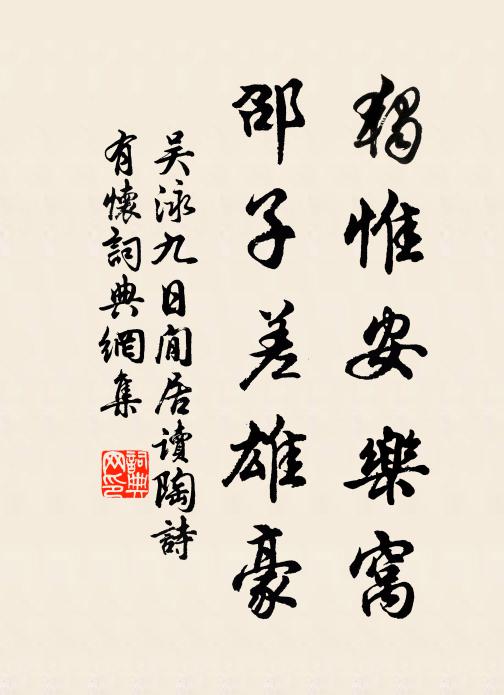 獨惟安樂窩
邵子差雄豪
吴泳九日閒居讀陶詩
有懷詞典網集
詞典
网印